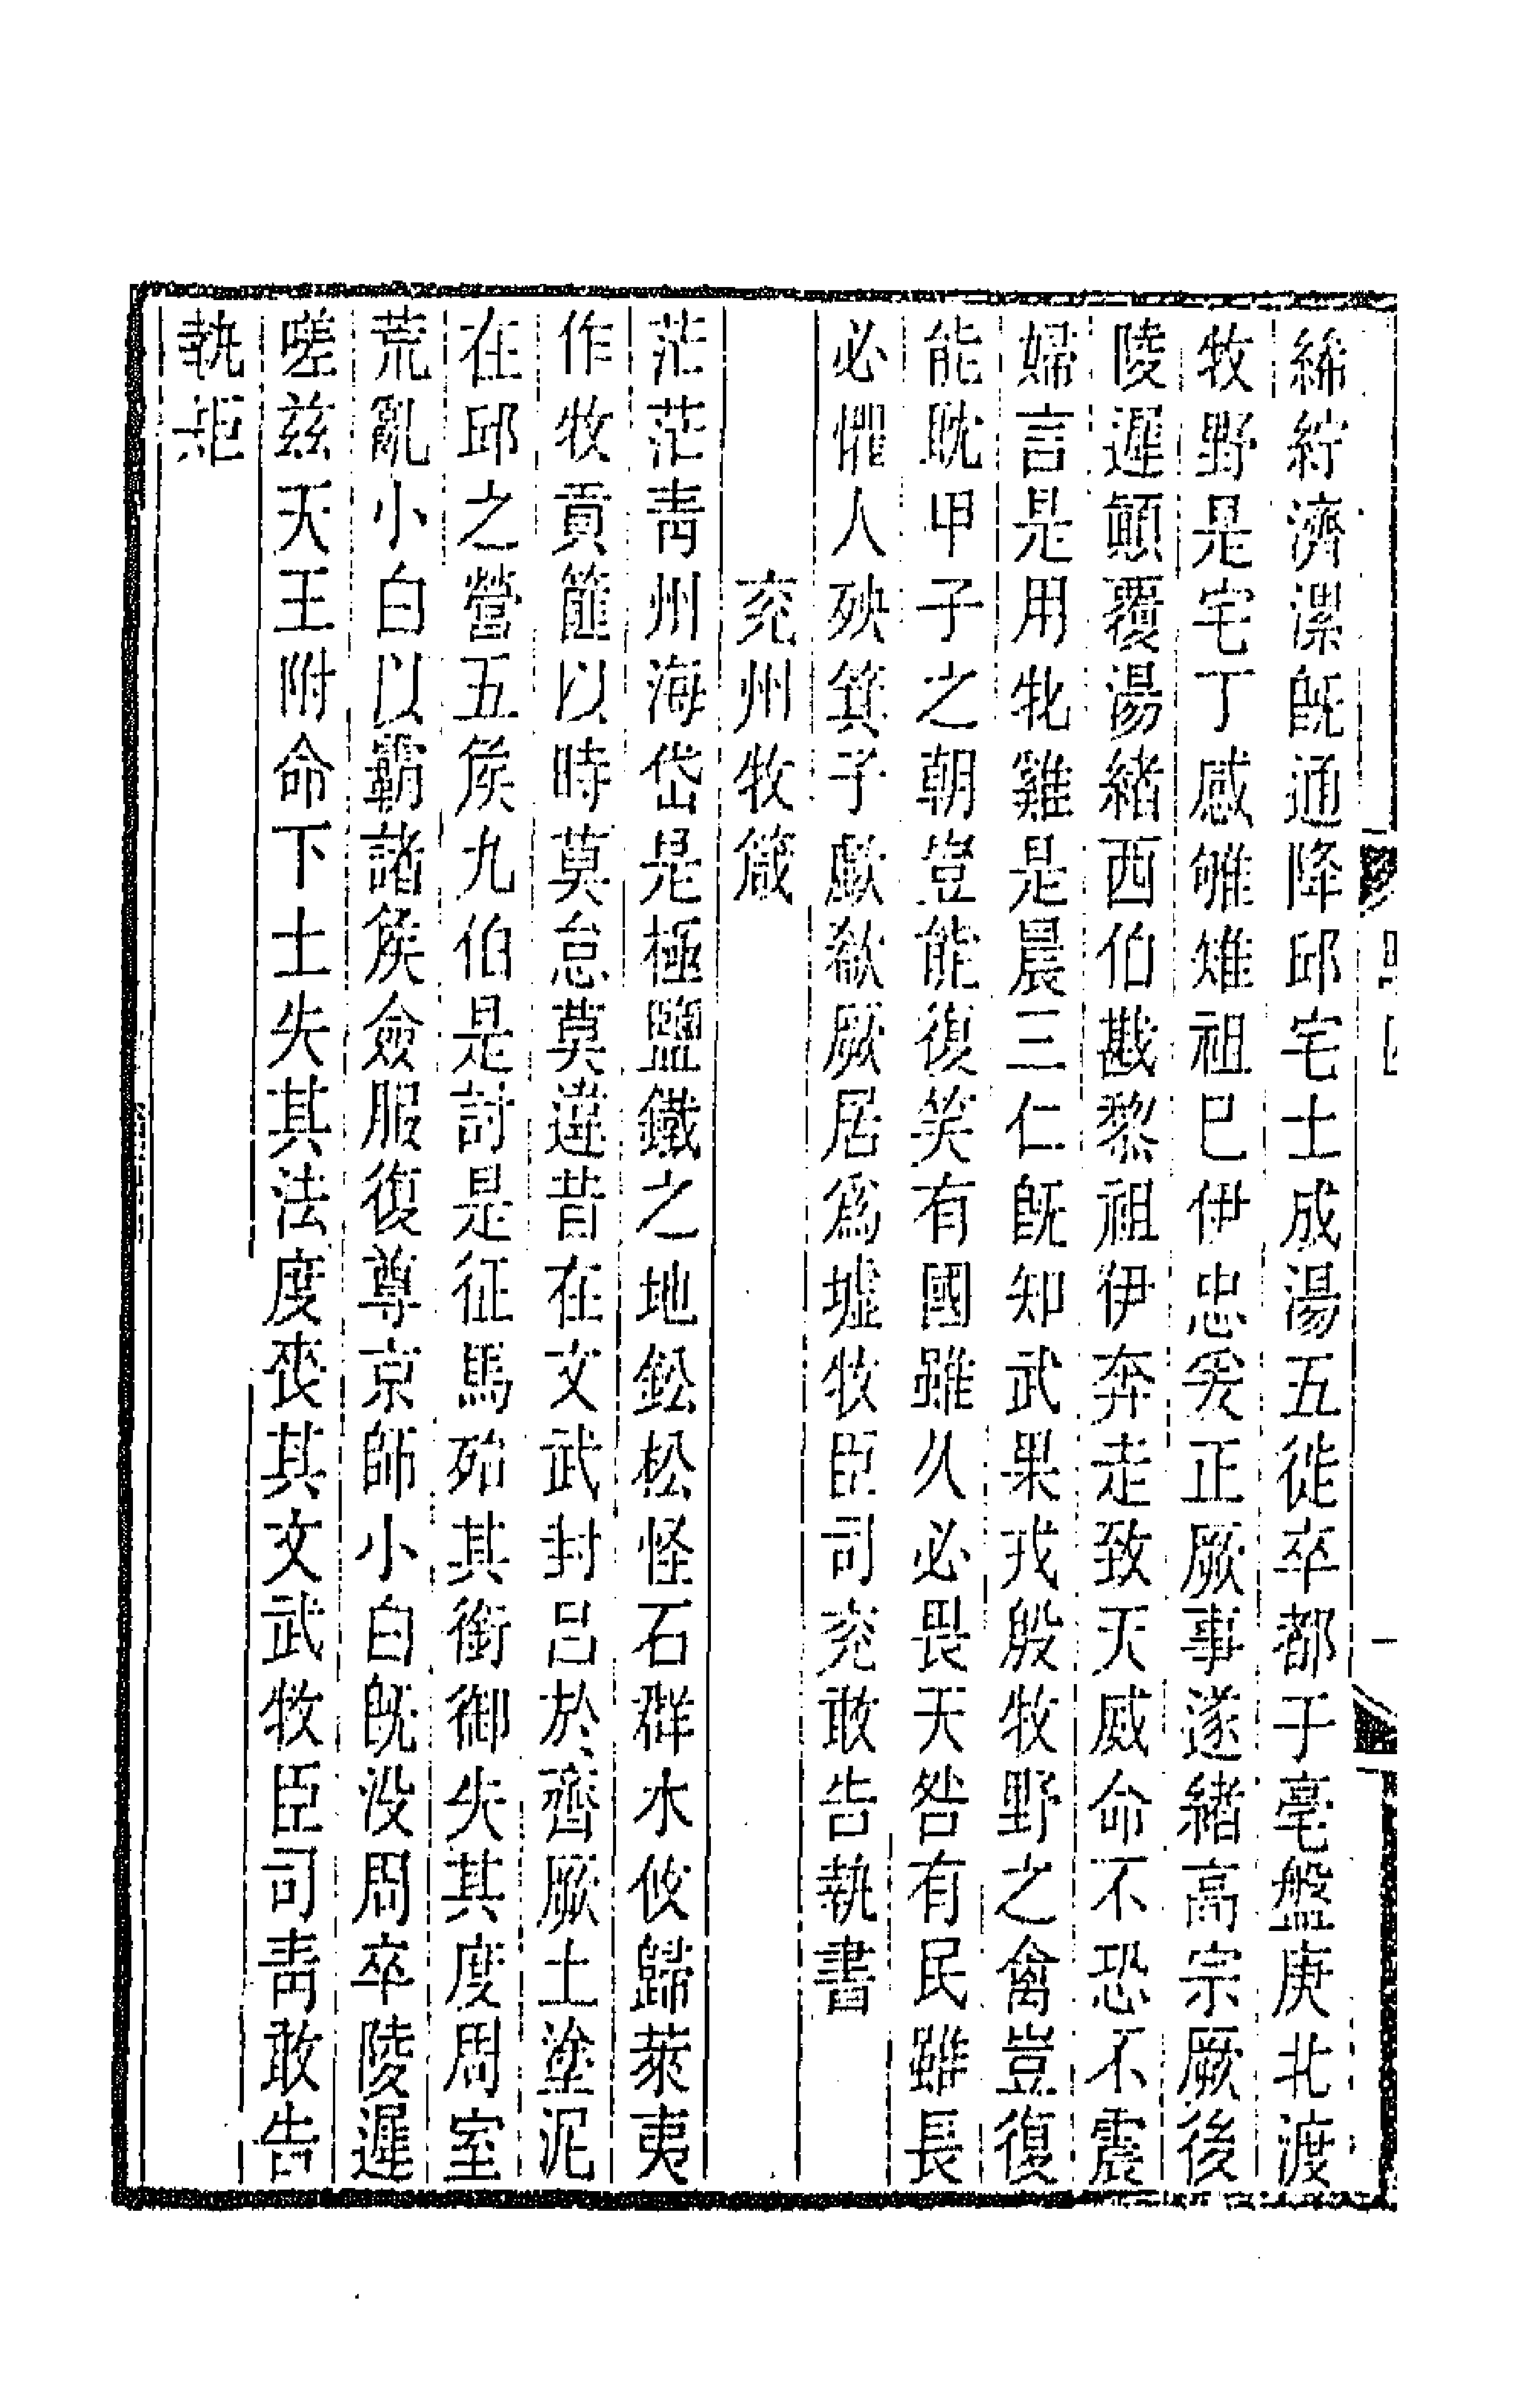 絺紵濟漯旣通降邱宅土成湯五徙卒都于亳盤庚北渡
牧野是宅丁感雊雉祖巳伊忠爰正厥事遂緒高宗厥後
陵遲顚覆湯緖西伯戡黎祖伊奔走致天威命不恐不震
婦言是用牝雞是晨三仁旣知武果戎殷牧野之禽豈復
能耽甲子之朝豈能復笑有國雖久必畏天咎有民雖長
必懼人殃箕子歔欷厥居爲墟牧臣司兖敢告執書
兖州牧箴
茫茫靑州海岱是極鹽鐵之地鈆松怪石群水攸歸萊夷
作牧貢篚以時莫怠莫違昔在文武封呂於齊厥土塗泥
在邱之營五侯九伯是討是征馬殆其銜御失其度周室
荒亂小白以霸諸侯僉服復尊京師小白旣没周卒陵遲
嗟兹天王附命下士失其法度喪其文武牧臣司靑敢告
執矩